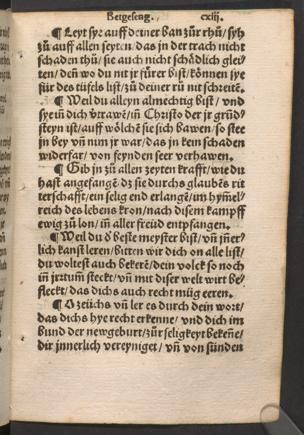 Betgeseng. cxiij.
¶ Leyt sye auff deiner ban zůr rhů/ syh
zů auff allen seyten/ das in der trach nicht
schaden thů/ sie auch nicht schödlich glei⸗
ten/ deñ wo du nit jr fürer bist/ können sye
für des tüfels list/ zů deiner rů nit schreitē.
¶ Weil du alleyn almechtig bist/ vnd
sye iñ dich v̈trawē/ iñ Christo der jr grūd⸗
steyn ist/ auff wölchē sie sich bawen/ so stee
in bey vñ nim jr war/ das jn kein schaden
widerfar/ von feynden seer verhawen.
¶ Gib jn zů allen zeyten krafft/ wie du
hast angefangē/ dz sie durchs glaubēs rit
terschafft/ ein selig end erlangē/ im hym̄el⸗
reich des lebens kron/ nach disem kampff
ewig zů lon/ iñ aller freüd entpfangen.
¶ Weil du ď beste meyster bist/ vñ jñer⸗
lich kanst leren/ bitten wir dich on alle list/
du wollest auch bekerē/ dein volck so noch
iñ jrrtum steckt/ vñ mit diser welt wirt be⸗
fleckt/ das dichs auch recht müg eeren.
¶ A zeüchs vñ ler es durch dein wort/
das dichs hye recht erkenne/ vnd dich im
bund der newgeburt/ zůr seligkeyt bekeñe/
dir jnnerlich vereyniget/ vñ von sünden